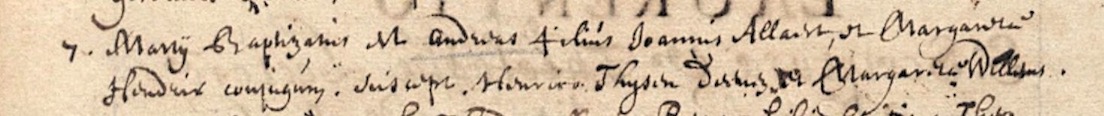 7. Martij Baptizatus est Andreas filius Joannis Allaert, et Margaretae
Hendrix conjugum. suscept. Henrico Thysen et Margareta Willems.